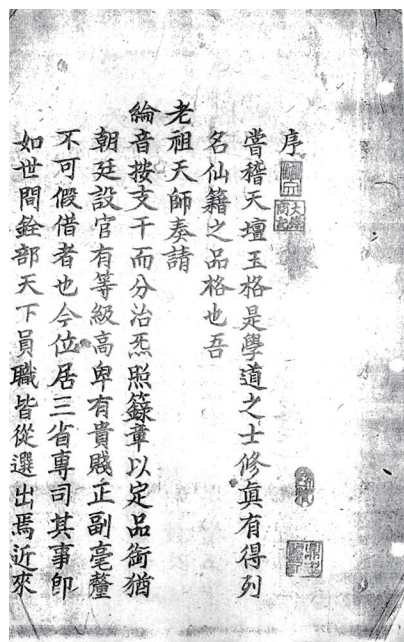 序
嘗稽天壇玉格是學道之士修眞有得列
名仙籍之品格也吾
老祖天師奏請
綸音按支干而分治炁照籙章以定品銜猶
朝廷設官有等級高卑有貴賤正副毫釐
不可假借者也今位居三省專司其事卽
如世間銓部天下員職皆從選出焉近來